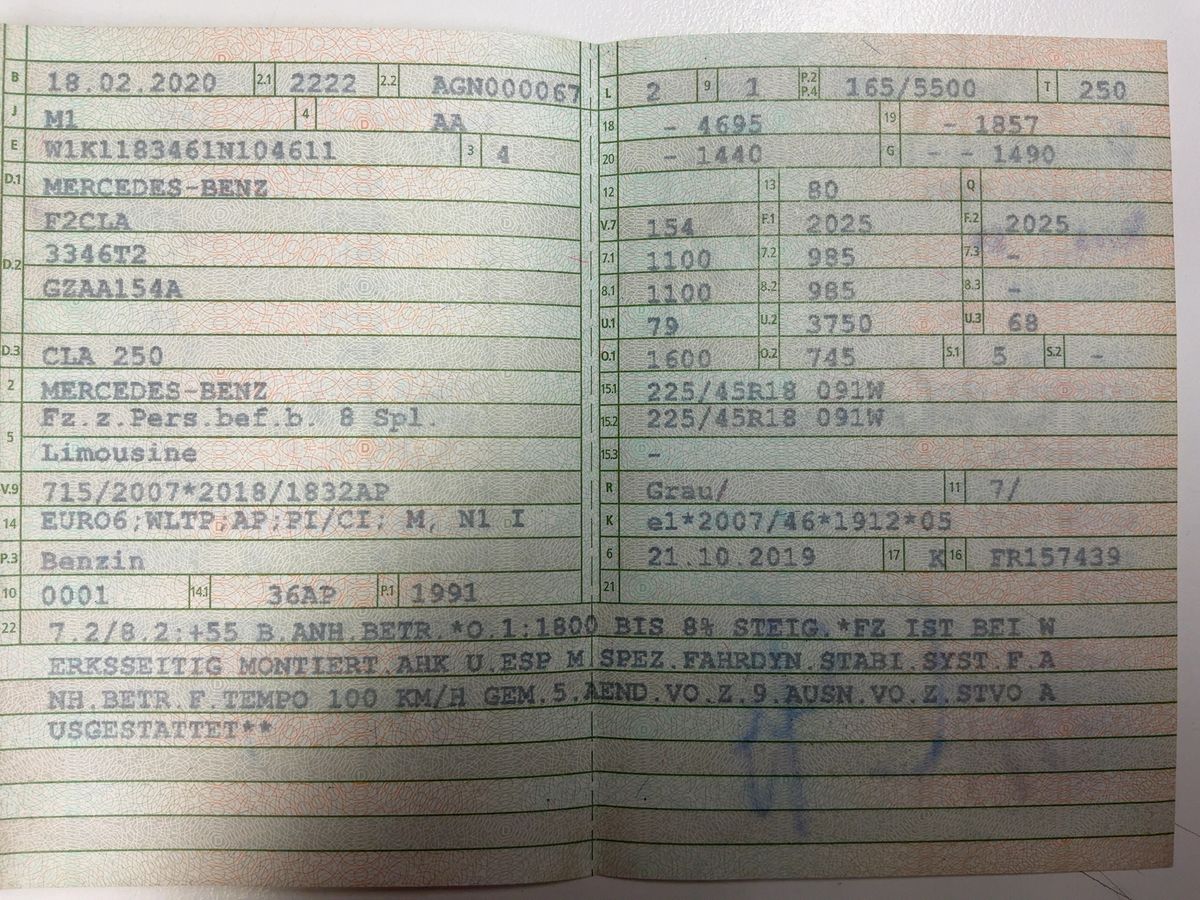 B 18.02.2020 2.1 2222 2.2 AGN000067
J M1 4 AA
E W1K1183461N104611 3 4
D.1 MERCEDES-BENZ
D.2 F2CLA
3346T2
GZAA154A
D.3 CLA 250
2 MERCEDES-BENZ
5 Fz.z.Pers.bef.b. 8 Spl.
Limousine
V.9 715/2007*2018/1832AP
14 EURO6;WLTP;AP;PI/CI; M, N1 I
P.3 Benzin
10 0001 14.1 36AP P.1 1991
L 2 9 1 P.2 P.4 165/5500 T 250
18 - 4695 19 - 1857
20 - 1440 G - - 1490
12 13 80 Q
V.7 154 F.1 2025 F.2 2025
7.1 1100 7.2 985 7.3 -
8.1 1100 8.2 985 8.3 -
U.1 79 U.2 3750 U.3 68
O.1 1600 O.2 745 S.1 5 S.2 -
15.1 225/45R18 091W
15.2 225/45R18 091W
15.3 -
R Grau/ 11 7/
K e1*2007/46*1912*05
6 21.10.2019 17 K 16 FR157439
21
22 7.2/8.2:+55 B.ANH.BETR.*O.1:1800 BIS 8% STEIG.*FZ IST BEI W
ERKSSEITIG MONTIERT.AHK U.ESP M.SPEZ.FAHRDYN.STABI.SYST.F.A
NH.BETR.F.TEMPO 100 KM/H GEM.5.AEND.VO.Z.9.AUSN.VO.Z.STVO A
USGESTATTET**